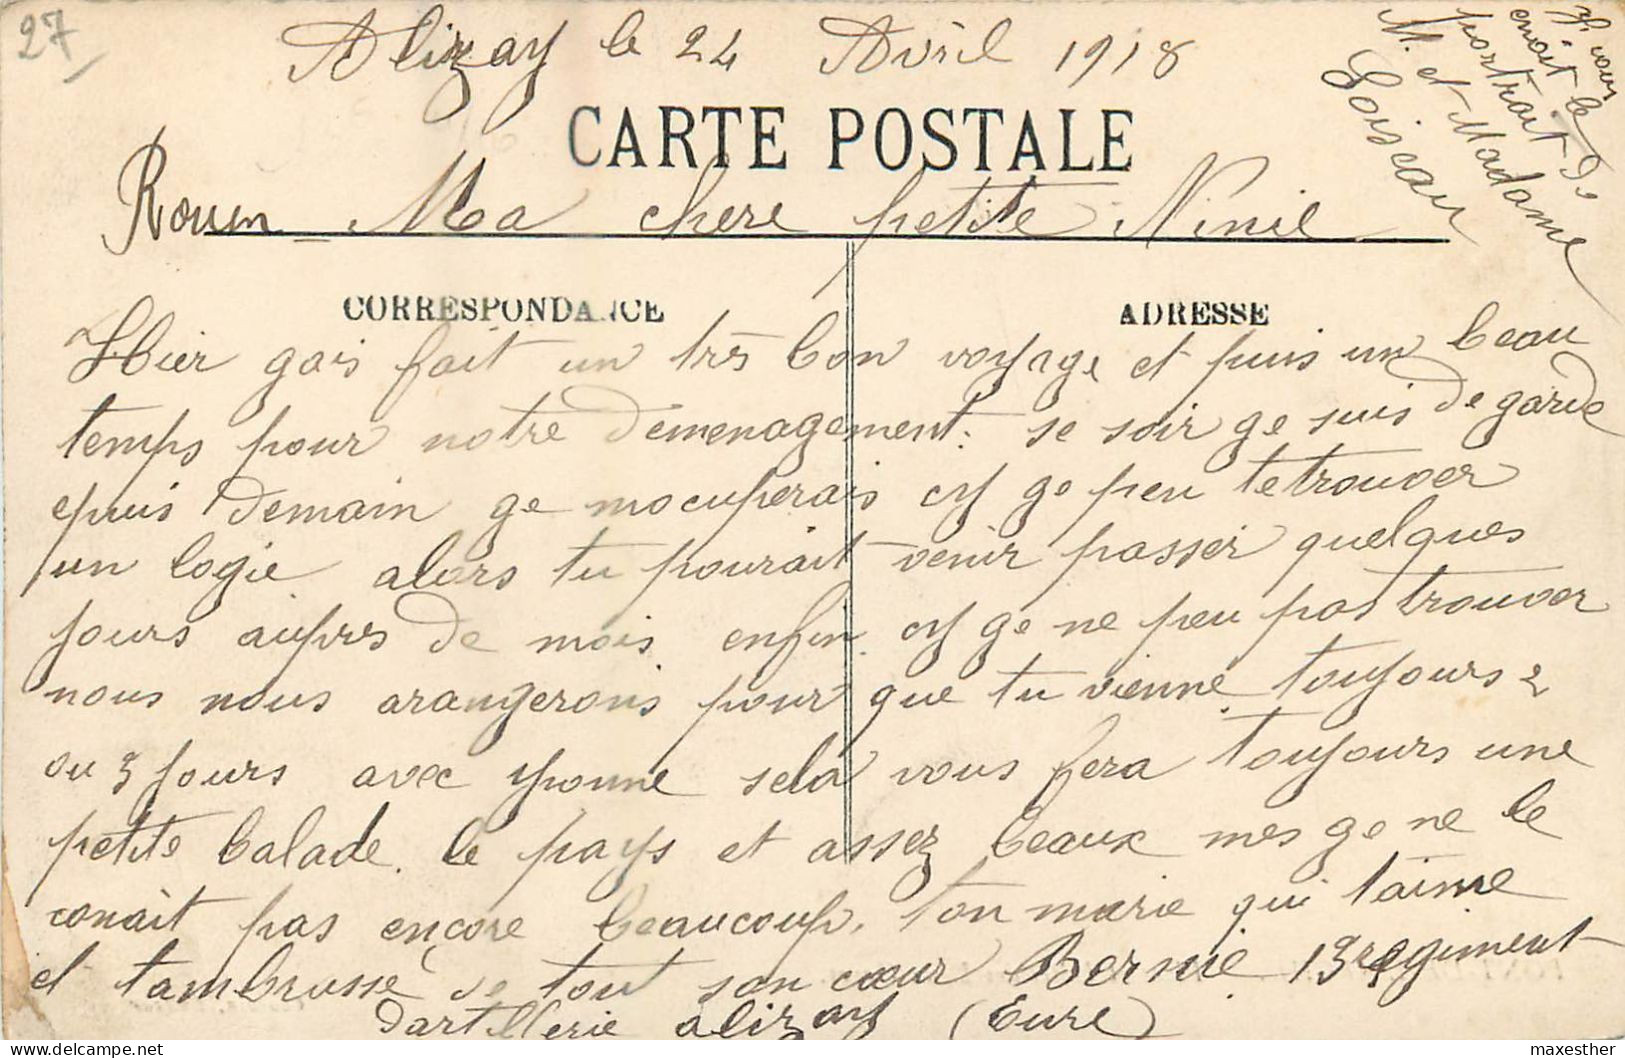 27
Alizay le 24 Avril 1918
Je vous
envoit le
portrait de
M. et Madame
Loiseau
CARTE POSTALE
Rouen - Ma chere petite Ninie
CORRESPONDANCE
ADRESSE
Hier gais fait un très bon voyage et puis un beau
temps pour notre demenagement. se soir ge suis de garde
epuis demain ge mocuperais cy ge peu te trouver
un logie alors tu pourait venir passer quelques
jours aupres de mois enfin cy ge ne peu pas trouver
nous nous arangerons pour que tu vienne toujours 2
ou 3 jours avec yvonne sela vous fera toujours une
petite balade. le pays et assez beaux mes ge ne le
conait pas encore beaucoup. ton marie qui taime
et tambrasse de tout son cœur Bernie 13 regiment
dartillerie alizay (Eure)
maxesther